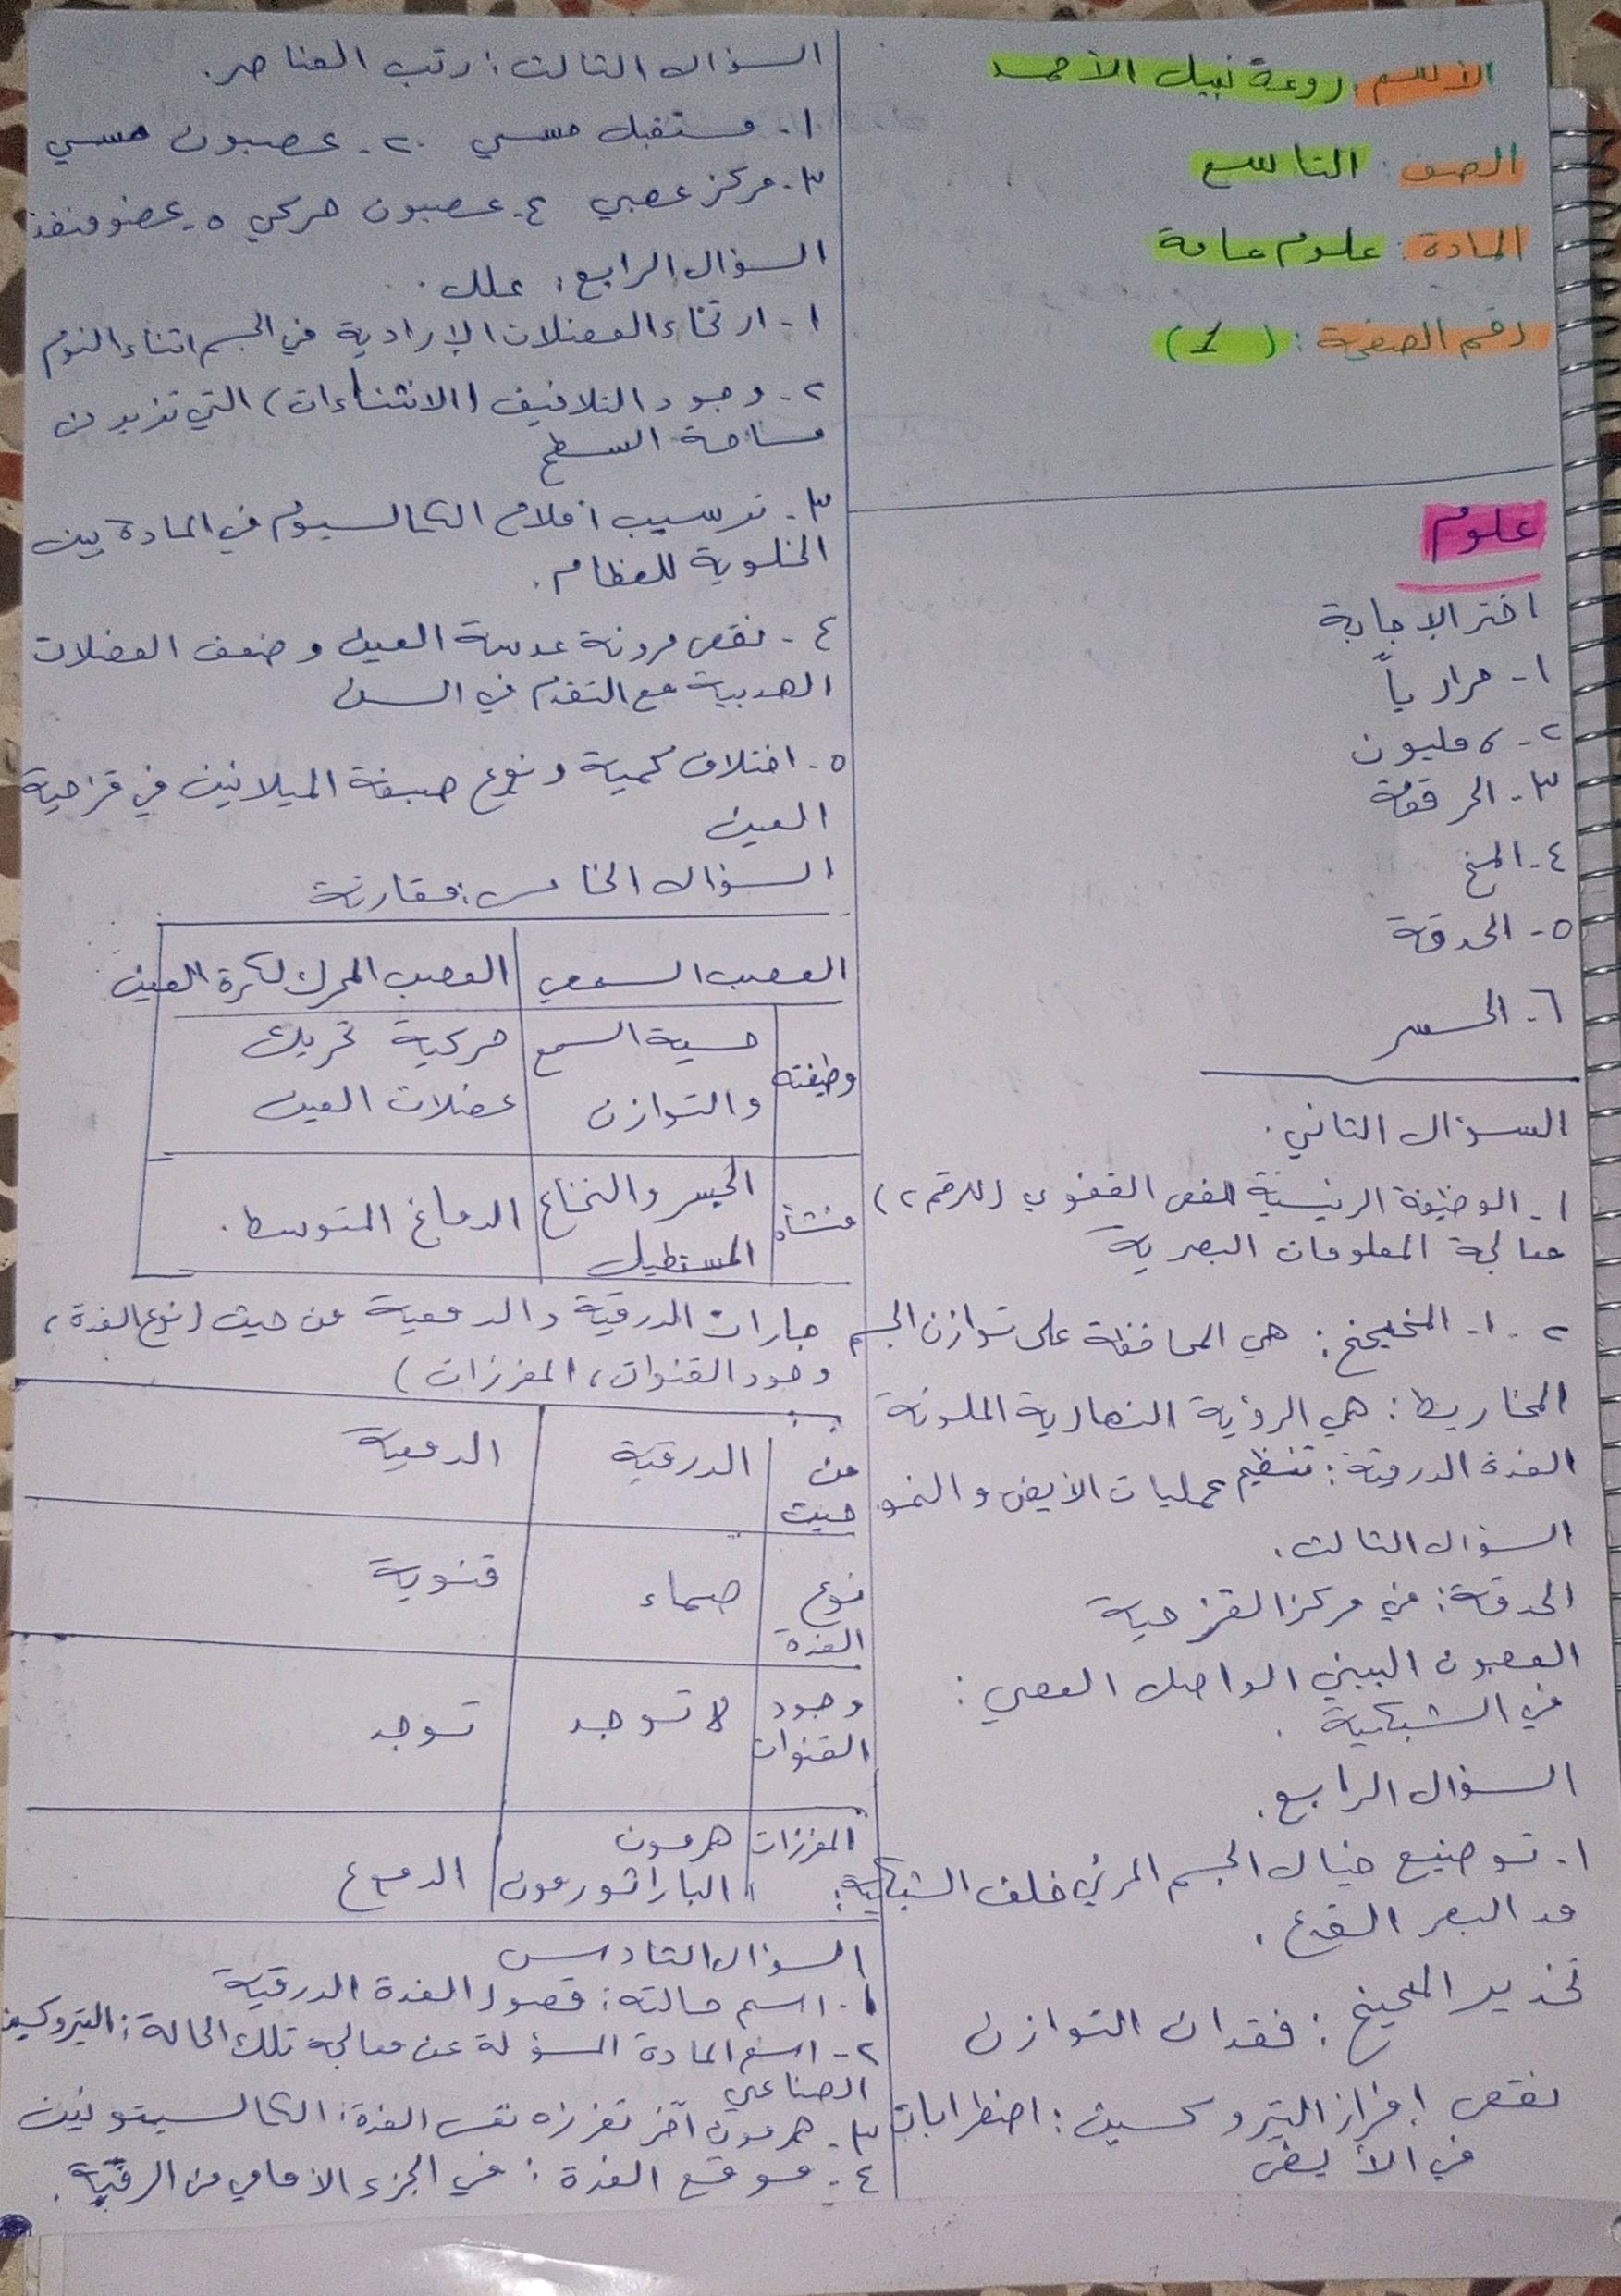 الاسم: روعة نبيل الأحمد
الصف: التاسع
المادة: علوم عامة
رقم الصفحة: (1)
علوم
اختر الإجابة
١- حرارياً
٢- ٦ مليون
٣- الحرقفة
٤- المخ
٥- الحدقة
٦- الجسر
السؤال الثاني.
١- الوظيفة الرئيسية الفص القفوي (للرقم ٢)
معالجة المعلومات البصرية
٢- ١- المخيخ: هي المحافظة على توازن الجسم
المخاريط: هي الرؤية النهارية الملونة
الغدة الدرقية: تنظيم عمليات الأيض والنمو
السؤال الثالث.
الحدقة: في مركز القزحية
العصبون البيني الواصل العصبي:
في الشبكية.
السؤال الرابع.
١- توضيع خيال الجسم المرئي خلف الشبكية:
مد البصر القدع.
تخدير المخيخ: فقدان التوازن
نقص إفراز التيروكسين: اضطرابات
في الأيض
السؤال الثالث: رتب العناصر.
١- مستقبل حسي ٢- عصبون حسي
٣- مركز عصبي ٤- عصبون حركي ٥- عضو منفذ
السؤال الرابع: علل.
١- ارتخاء العضلات الإرادية في الجسم اثناء النوم
٢- وجود التلافيف (الانثناءات) التي تزيد من
مساحة السطح
٣- ترسيب املاح الكالسيوم في المادة بين
الخلوية للعظام.
٤- نقص مرونة عدسة العين وضعف العضلات
الهدبية مع التقدم في السن
٥- اختلاف كمية ونوع صبغة الميلانين في قزحية
العين
السؤال الخامس: مقارنة
العصب السمعي العصب المحرك لكرة العين
وظيفته حسية السمع حركية تحريك
والتوازن عضلات العين
منشأه الجسر والنخاع الدماغ المتوسط.
المستطيل
جارات الدرقية والدمعية من حيث (نوع الغدة،
وجود القنوات، المفرزات)
من الدرقية الدمعية
حيث
نوع صماء قنوية
الغدة
وجود لا توجد توجد
القنوات
المفرزات هرمون
الباراثورمون الدموع
السؤال السادس
١- اسم حالته: قصور الغدة الدرقية
٢- اسم المادة المسؤلة عن معالجة تلك الحالة: التيروكسين
الصناعي
٣- هرمون آخر تفرزه نفس الغدة: الكالسيتونين
٤- موقع الغدة: في الجزء الأمامي من الرقبة.